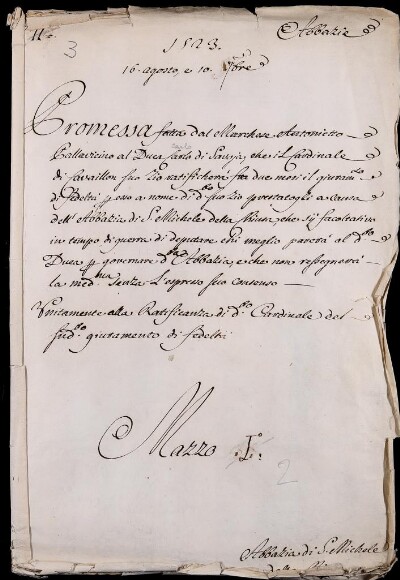 11.
3
Abbazie
1523.
16. agosto, e 10. 7bre
Promessa fatta dal Marchese Antonietto
Pallavicino al Duca Carlo di Savoja, che il Cardinale
di Cavaillon suo Zio ratificherà fra due mesi il giuram.to
di fedeltà p esso a nome di d.o suo Zio prestatogli a causa
dell'Abbazia di S. Michele della Chiusa, che sij facoltativo
in tempo di guerra di deputare chi meglio parerà al d.o
Duca p governare d.a Abbazia, e che non rassegnarà
la med.ma senza l'espresso suo consenso
Unitamente alla Ratificanza di d.o Cardinale del
sud.o giuramento di fedeltà
Mazzo I.o
2
Abbazia di S. Michele